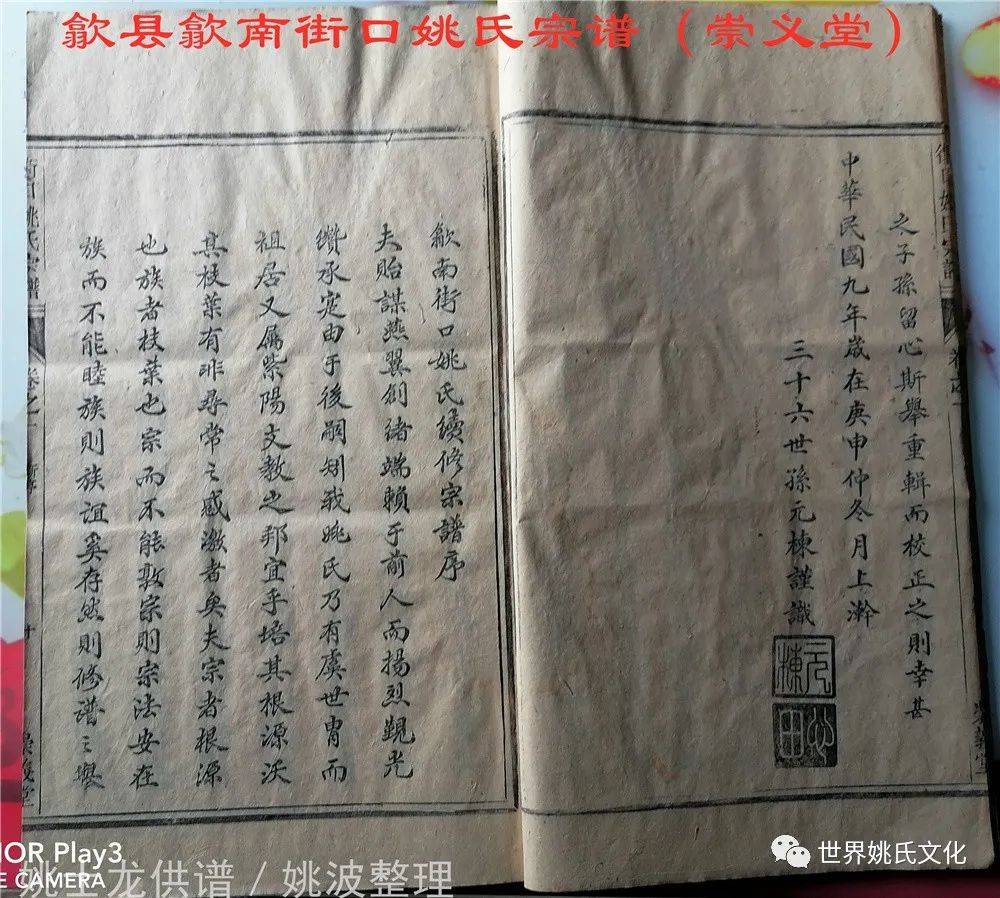 歙县歙南街口姚氏宗谱（崇义堂）
之子孫留心斯舉重輯而校正之則幸甚
中華民國九年歲在庚申仲冬月上澣
三十六世孫元棟謹識
元棟
崇義堂
歙南街口姚氏續修宗譜序
夫貽謀燕翼創緒端賴于前人而揚烈覲光
纘承寔由于後嗣矧我姚氏乃有虞世胄而
祖居又屬紫陽文教之邦宜乎培其根源沃
其枝葉有非尋常之感激者矣夫宗者根源
也族者枝葉也宗而不能敦宗則宗法安在
族而不能睦族則族誼奚存然則修譜之舉
街口姚氏宗譜
卷之一
崇義堂
NOR Play3
CAMERA
龙供谱 / 姚波整理
世界姚氏文化